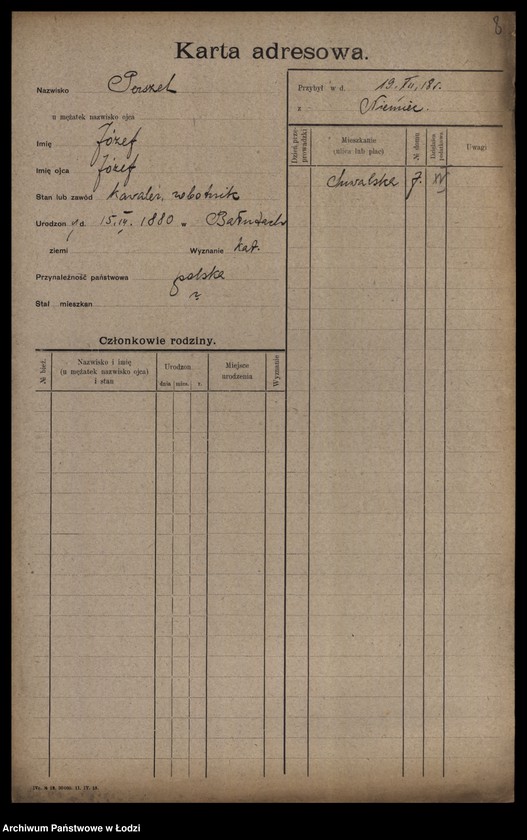 8
Karta adresowa.
Nazwisko Perszel
u mężatek nazwisko ojca
Imię Józef
Imię ojca Józef
Stan lub zawód kawaler, robotnik
Urodzon y d. 15. IV. 1880 w Bałutach
ziemi Wyznanie kat.
Przynależność państwowa polska
Stał mieszkan
Przybył w d. 19. XII. 18 r.
z Niemiec.
Dzień przeprowadzki
Mieszkanie (ulica lub plac)
№ domu
Dzielnica policyjna
Uwagi
Chwalska 7. XV
Członkowie rodziny.
№ bież.
Nazwisko i imię
(u mężatek nazwisko ojca)
i stan
Urodzon
dnia mies. r.
Miejsce
urodzenia
Wyznanie
Archiwum Państwowe w Łodzi